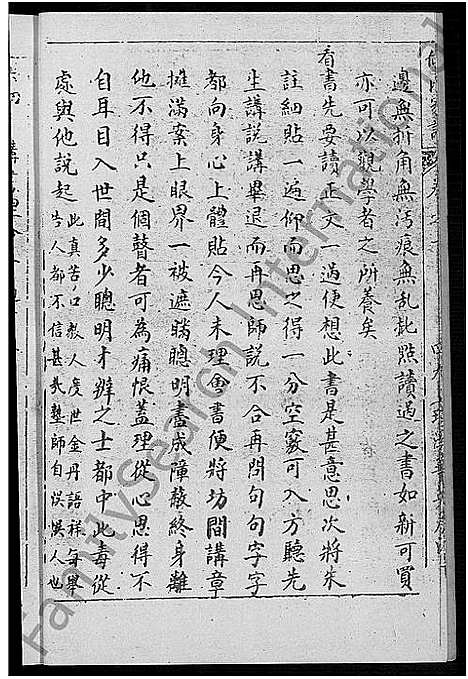 邊無折角無汚痕無乱批點讀過之書如新可買
亦可以觀學者之所養矣
看書先要讀正文一過便想此書是甚意思次將朱
註細貼一遍仰而思之得一分空竅可入方聽先
生講說講畢退而再思師說不合再問句句字字
都向身心上體貼今人未理會書便將坊間講章
攤滿案上眼界一被遮瞞聰明盡成障蔽終身離
他不得只是個瞽者可為痛恨蓋理從心思得不
自耳目入世間多少聰明才辨之士都中此毒從
處與他說起此真苦口教人度世金丹語祥每舉
告人都不信甚哉塾師自误误人也
FamilySearch International